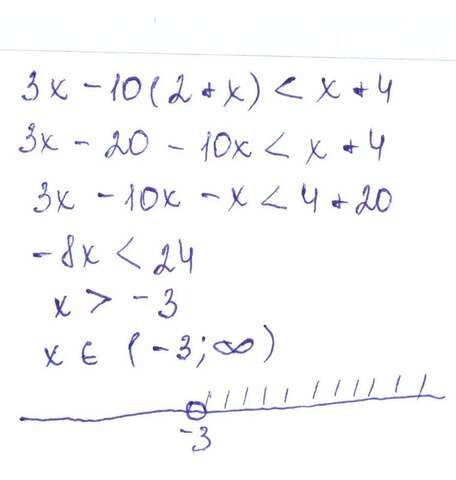 3x - 10(2 + x) < x + 4
3x - 20 - 10x < x + 4
3x - 10x - x < 4 + 20
-8x < 24
x > -3
x ∈ (-3; ∞)
-3